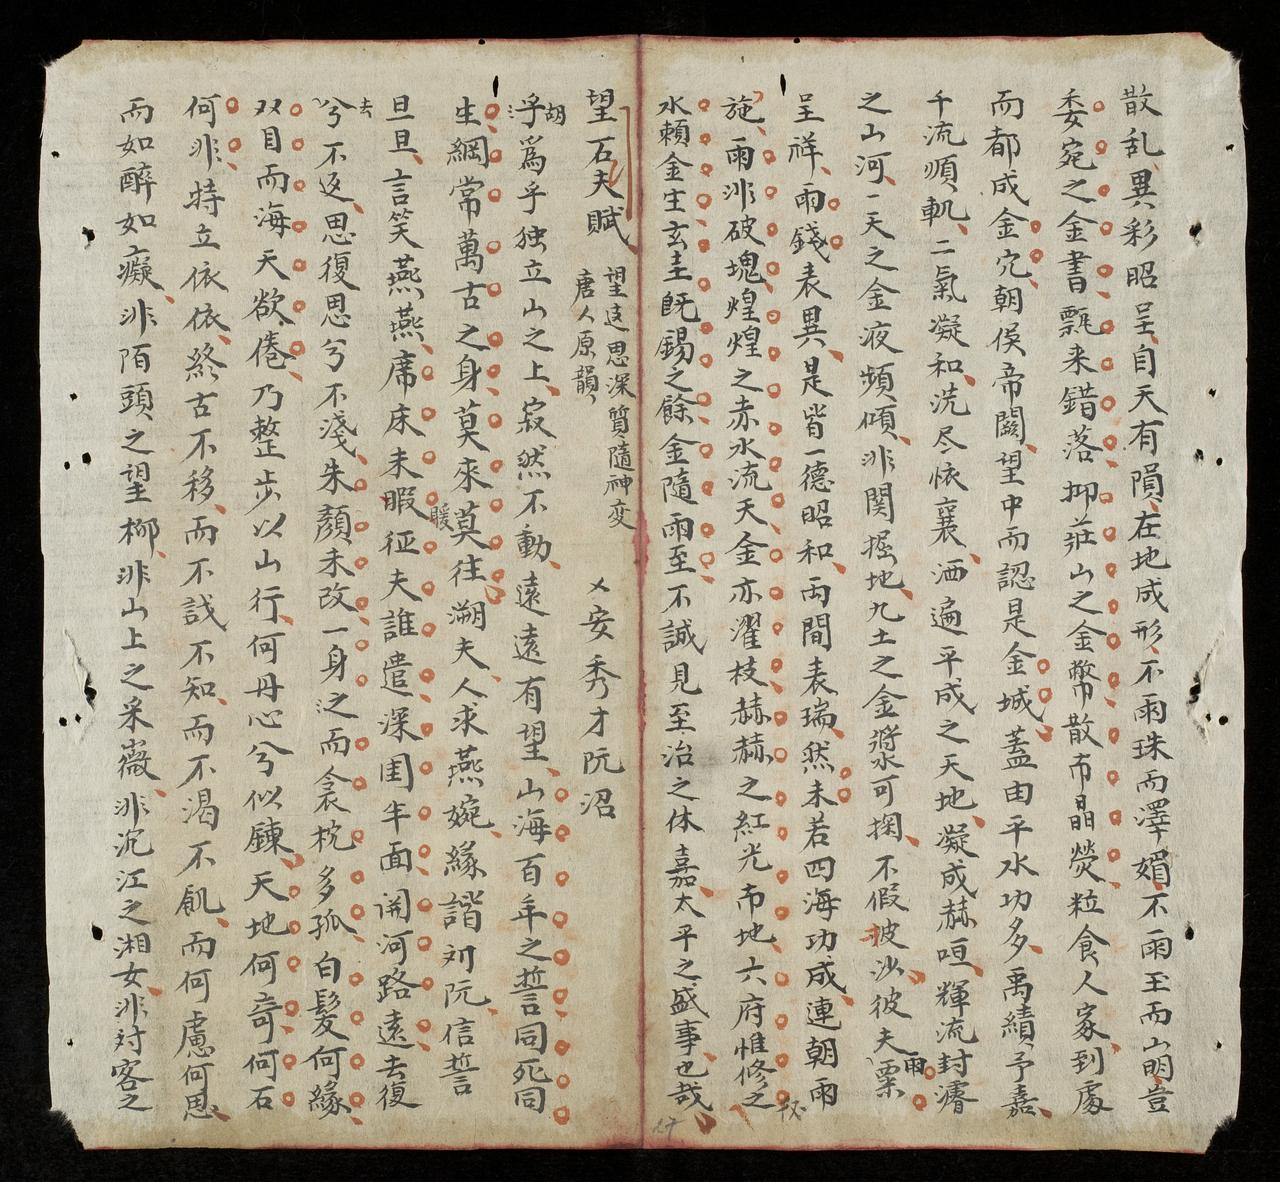 散乱異彩昭呈自天有隕在地成形不雨珠而澤媚不雨玉而山明豈
委宛之金書飄来錯落抑莊山之金幣散布晶熒粒食人家到處
而都成金穴朝俟帝闕望中而認是金城蓋由平水功多禹績予嘉
千流順軌二氣凝和洗尽怀襄洒遍平成之天地凝成赫咺輝流封濬
之山河一天之金液頻傾非関掘地九土之金漿可掬不假披沙彼夫雨粟
呈祥雨錢表異是皆一德昭和両間表瑞然未若四海功成連朝雨
施雨非破塊煌煌之赤水流天金亦濯枝赫赫之紅光布地六府惟修之
水賴金生玄圭既錫之餘金隨雨至不誠見至治之休嘉太平之盛事也哉
望石夫賦 望遠思深質隨神変 唐人原韻 乂安秀才阮沼
胡
乎為乎独立山之上寂然不動遠遠有望山海百年之誓同死同
生綱常萬古之身莫來莫往溯夫人求燕婉緣諧刘阮信誓
旦旦言笑燕燕席床未暇征夫誰遣深閨半面閞河路遠去復
暖
去
兮不返思復思兮不淺朱顏未改一身之而衾枕多孤白髮何緣
双目而海天欲倦乃整步以山行何丹心兮似鍊天地何竒何石
何非特立依依終古不移而不戝不知而不渴不飢而何慮何思
而如醉如癡非陌頭之望柳非山上之采薇非沉江之湘女非対客之